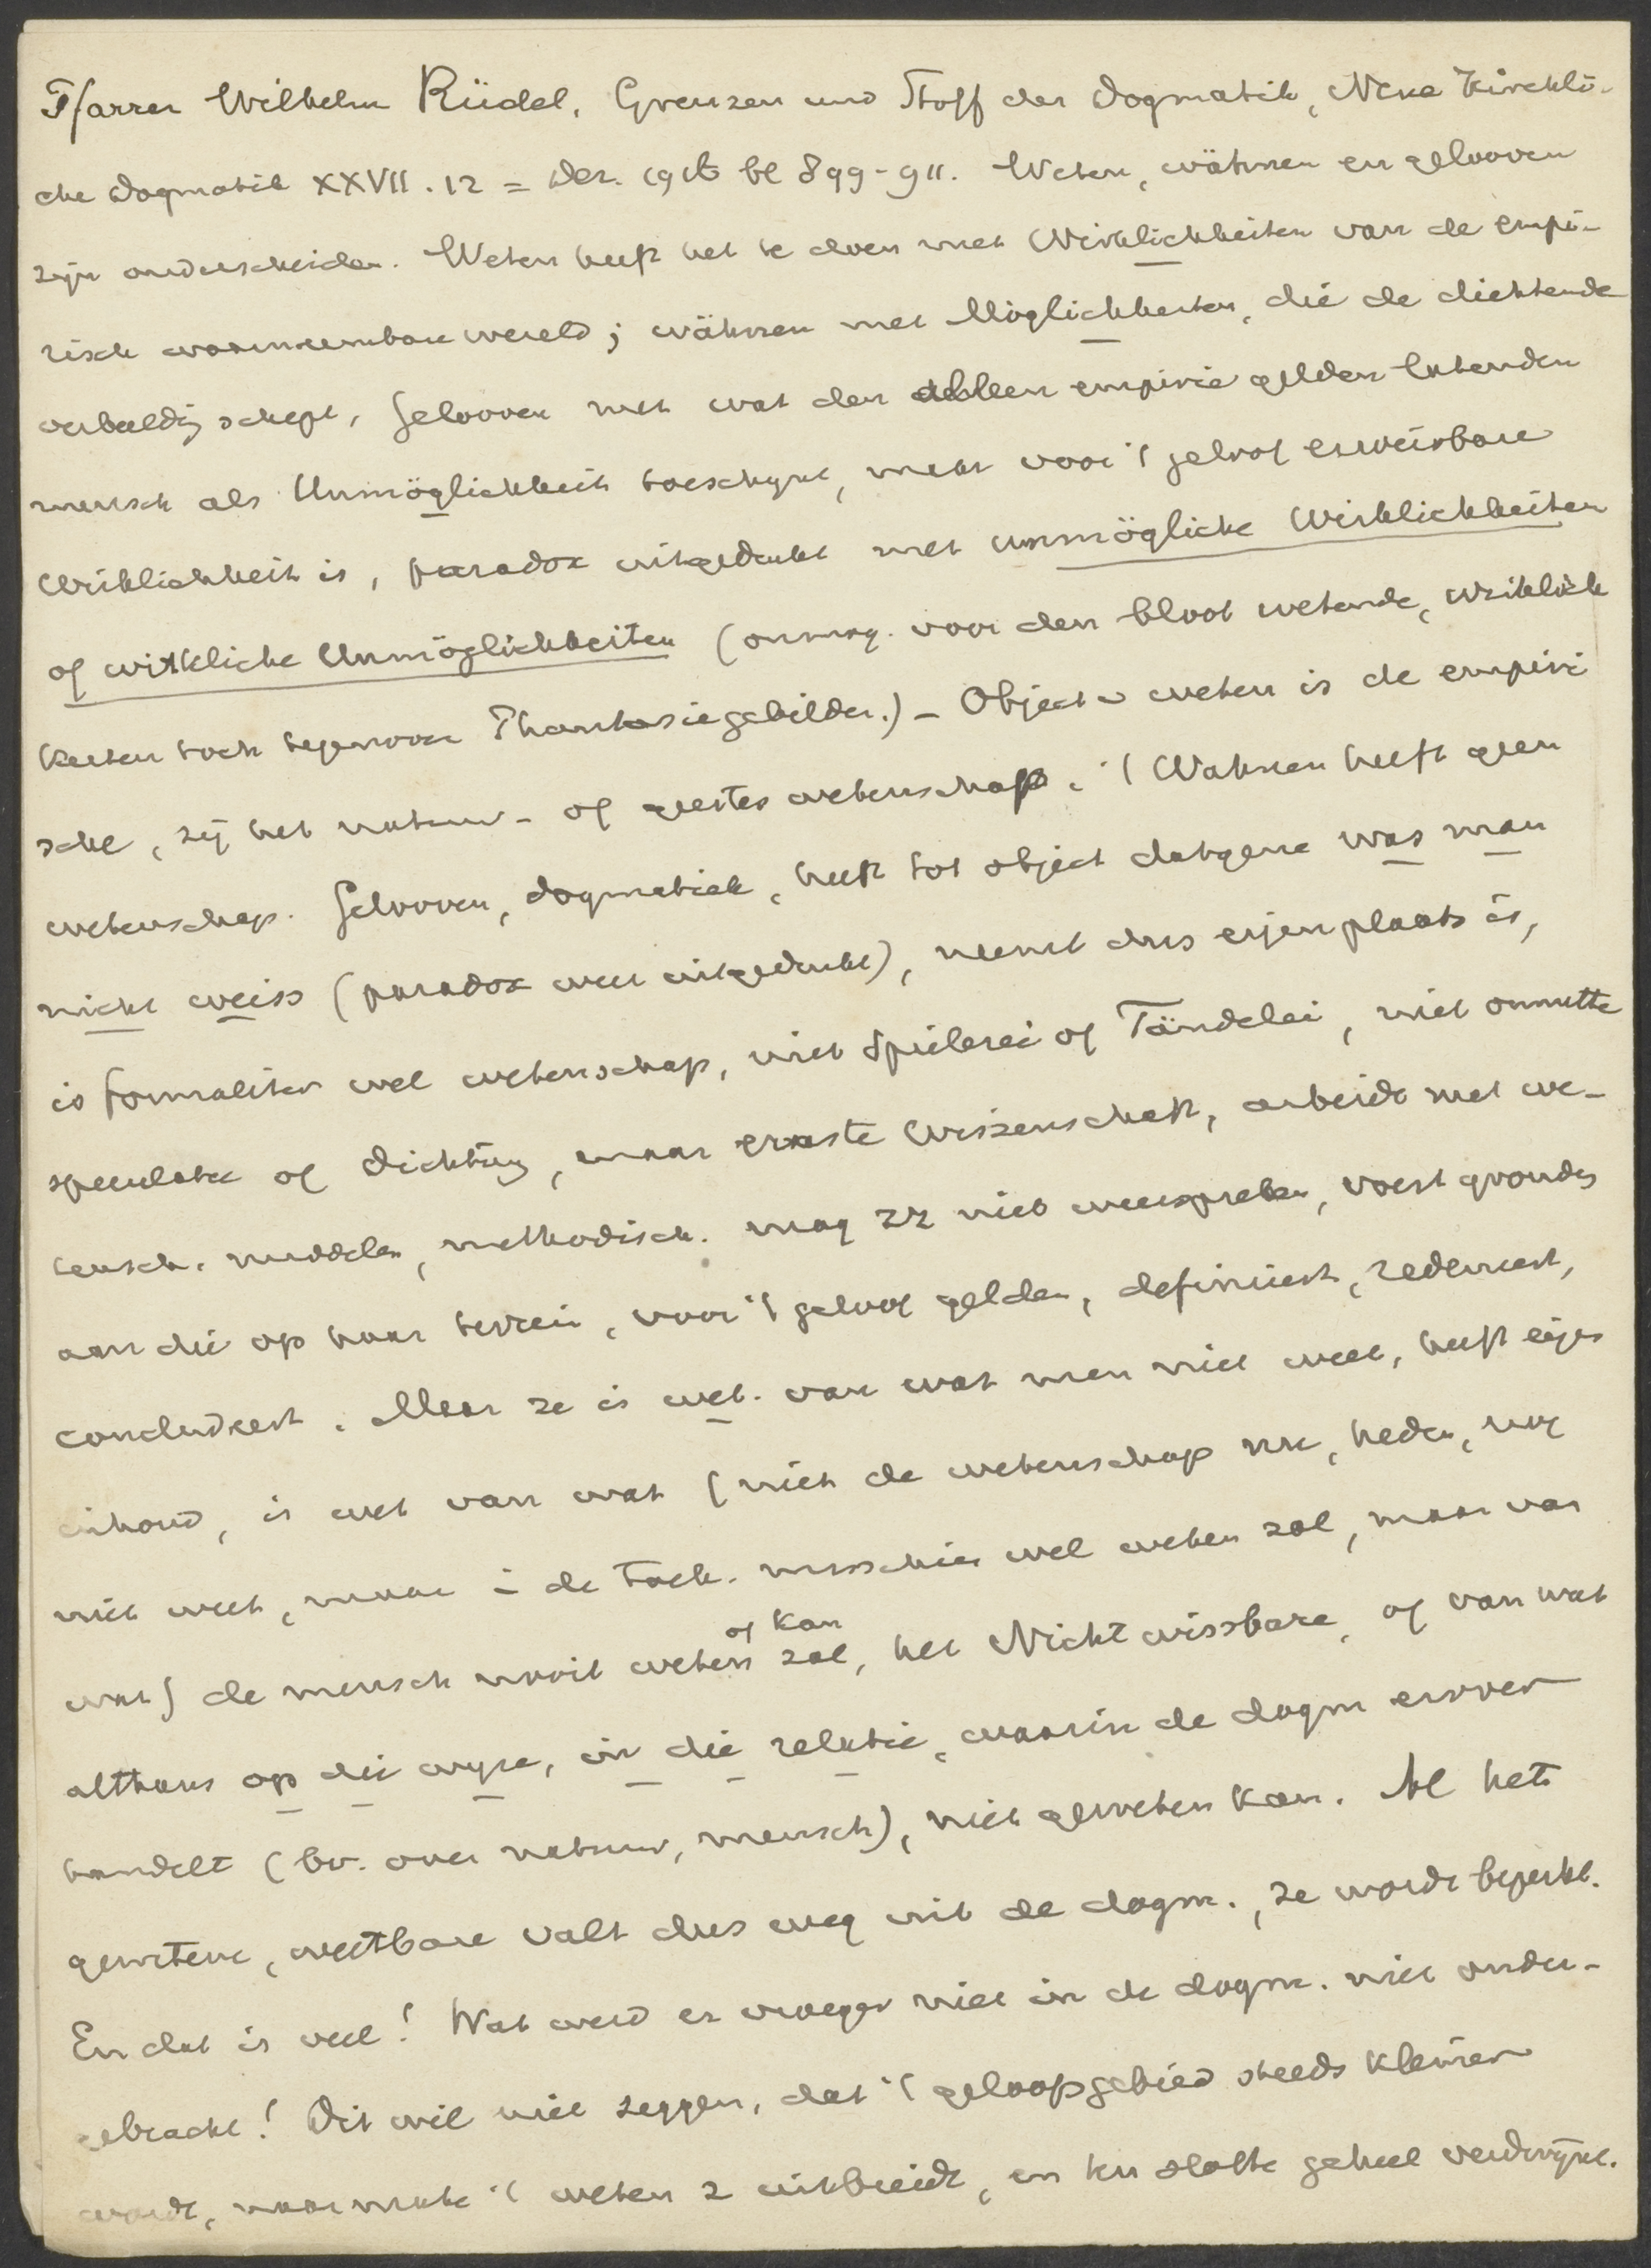 Pfarrer Wilhelm Rüdel, Grenzen und Stoff der Dogmatik, Neue Kirchli-
che Dogmatik XXVII.12 = Dez. 1916 bl 899-911. Weten, wähnen en gelooven
zijn onderscheiden. Weten heeft het te doen met Wirklichkeiten van de empi-
risch waarneembare wereld; wähnen met Möglichkeiten, die de dichtende
verbeeldg schept, Gelooven met wat den alleen empirie gelden latenden
mensch als Unmöglichkeit toeschynt, maar voor 't geloof erweisbare
Wirklichkeit is, paradox uitgedrukt met unmögliche Wirklichkeiten
of wirkliche Unmöglichkeiten (onmog. voor den bloot wetende, Wirklich
keiten toch tegenover Phantasiegebilden.) - Object v weten is de empiri
sche, zij het natuur- of geestes wetenschap. 't Wähnen heeft geen
wetenschap. Gelooven, dogmatiek, heeft tot object datgene was man
nicht weiss (paradox weer uitgedrukt), neemt dus eigen plaats in,
is formaliter wel wetenschap, niet Spielerei of Tändelei, niet onnutte
speculatie of dichting, maar ernste Wissenschaft, arbeidt met we-
tensch. middelen, methodisch. mag zz niet weerspreken, voert gronden
aan die op haar terrein, voor 't geloof gelden, definieert, redeneert,
concludeert. Maar ze is wet. van wat men niet weet, heeft eigen
inhoud, is wet van wat (niet de wetenschap nu, heden, nog
niet weet, maar in de toek. misschien wel weten zal, maar van
wat) de mensch nooit weten of kan zal, het Nichtwissbare, of van wat
althans op die wyze, in die relatie, waarin de dogm erover
handelt (bv. over natuur, mensch), niet geweten kan. Al het
gewetene, weetbare valt dus weg uit de dogm., ze wordt beperkt.
En dat is veel! Wat werd er vroeger niet in de dogm. niet onder-
gebracht! Dit wil niet zeggen, dat 't geloofsgebied steeds kleiner
wordt, naarmate 't weten z uitbreidt, en ten slotte geheel verdwijnt.